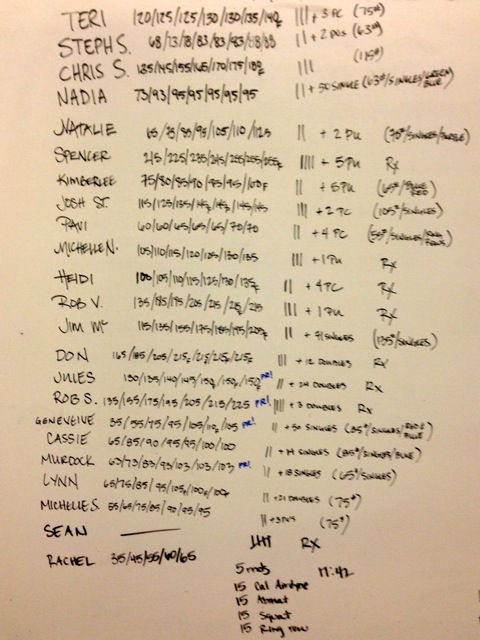 TERI 120/125/125/130/130/135/140F ||| + 3 PC (75#)
STEPH S. 68/73/78/83/83/83/88/88 || + 2 PUs (63#)
CHRIS S. 135/145/155/165/170/175/180F ||| (115#)
NADIA 73/93/95/95/95/95/95 || + 50 SINGLE (63#/SINGLES/GREEN/BLUE)
NATALIE 65/75/85/95/105/110/125 || + 2 PU (70#/SINGLES/PURPLE)
SPENCER 215/225/235/245/255/255/255F |||| + 5 PU Rx
KIMBERLEE 75/80/85/90/95/95/100F || + 5 PU (65#/BLUE/RED)
JOSH ST. 115/125/135/145F/145F/145/145 ||| + 2 PC (105#/SINGLES)
PAVI 60/60/65/65/65/70/70 || + 4 PC (55#/SINGLES/RING ROWS)
MICHELLE N. 105/110/115/120/105/130/135 ||| + 1 PU Rx
HEIDI 100/105/110/115/125/130/135F || + 4 PC Rx
ROB V. 135/185/195/205/215/215F/215 ||| + 1 PU Rx
JIM Mc 115/135/155/175/185/195/200F || + 91 SINGLES (135#/SINGLES)
DON 165/185/205/215F/215/215F/215F ||| + 12 DOUBLES Rx
JULES 130/135/140/145/150F/150F/150F PR! || + 24 DOUBLES Rx
ROB S. 135/155/175/195/205/215/225 PR! |||| + 3 DOUBLES Rx
GENEVIEVE 35/55/75/95/105/110F/105 PR! || + 50 SINGLES (85#/SINGLES/RED/BLUE)
CASSIE 65/85/90/95/95/100/100 || + 14 SINGLES (85#/SINGLES/BLUE)
MURDOCK 63/73/83/93/103/103/103 PR! || + 18 SINGLES (65#/SINGLES)
LYNN 65/75/85/95/105F/100F/100F || + 21 DOUBLES (75#)
MICHELLE S. 55/65/75/85/90/95/95 || + 3 PUs (75#)
SEAN —— |||| RX
RACHEL 35/45/55/60/65
5 rnds 17:42
15 Cal Airdyne
15 Abmat
15 Squat
15 Ring row